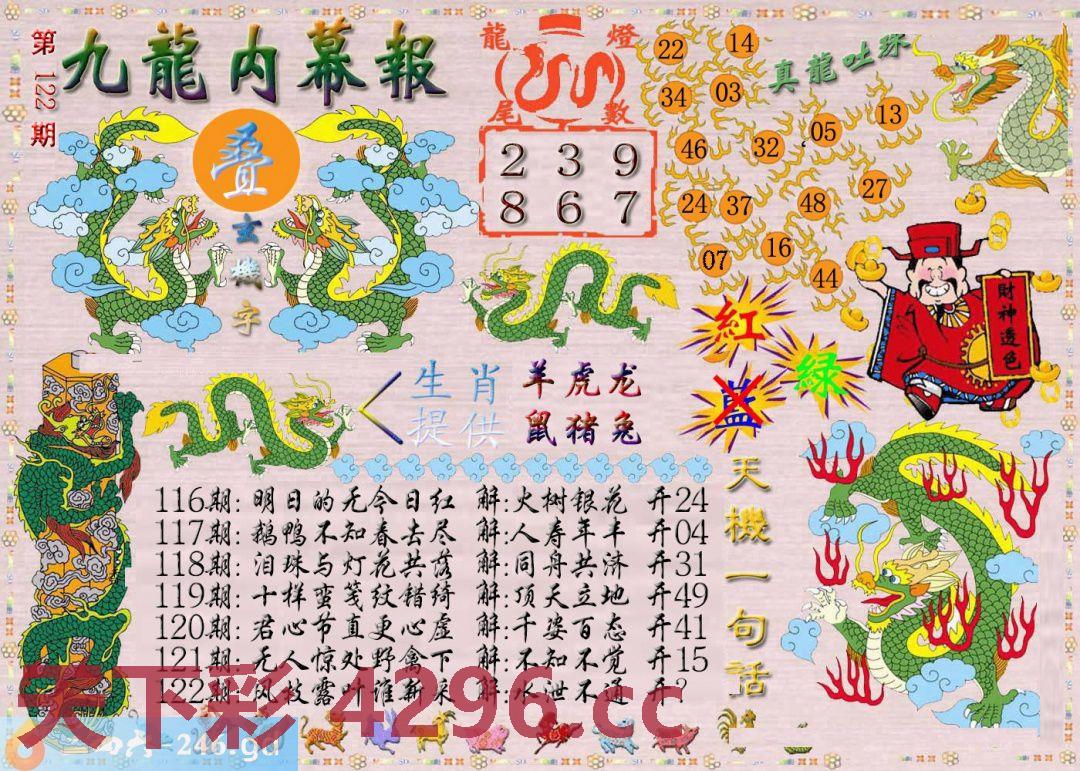 第122期
九龍内幕報
叠
玄機字
龍燈
尾數
2 3 9
8 6 7
真龍吐珠
22 14
34 03
46 32 05 13
24 37 48 27
07 16 44
財神透色
紅
绿
藍
生肖 羊虎龙
提供 鼠猪兔
天機一句話
116期: 明日的无今日红 解:火树银花 开24
117期: 鹅鸭不知春去尽 解:人寿年丰 开04
118期: 泪珠与灯花共落 解:同舟共济 开31
119期: 十样蛮笺纹错绮 解:顶天立地 开49
120期: 君心节直更心虚 解:千姿百态 开41
121期: 无人惊处野禽下 解:不知不觉 开15
122期: 风被露叶谁新采 解:水泄不通 开?
天下彩 4296.cc
=246.gd